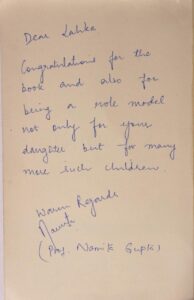 Dear Lalika
Congratulations for the
book and also for
being a role model
not only for your
daughter but for many
more such children.
Warm Regards
(Prof. Namita Gupta)